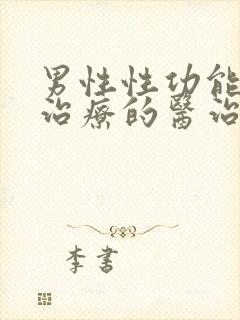 男性性功能
治療的醫治
李書